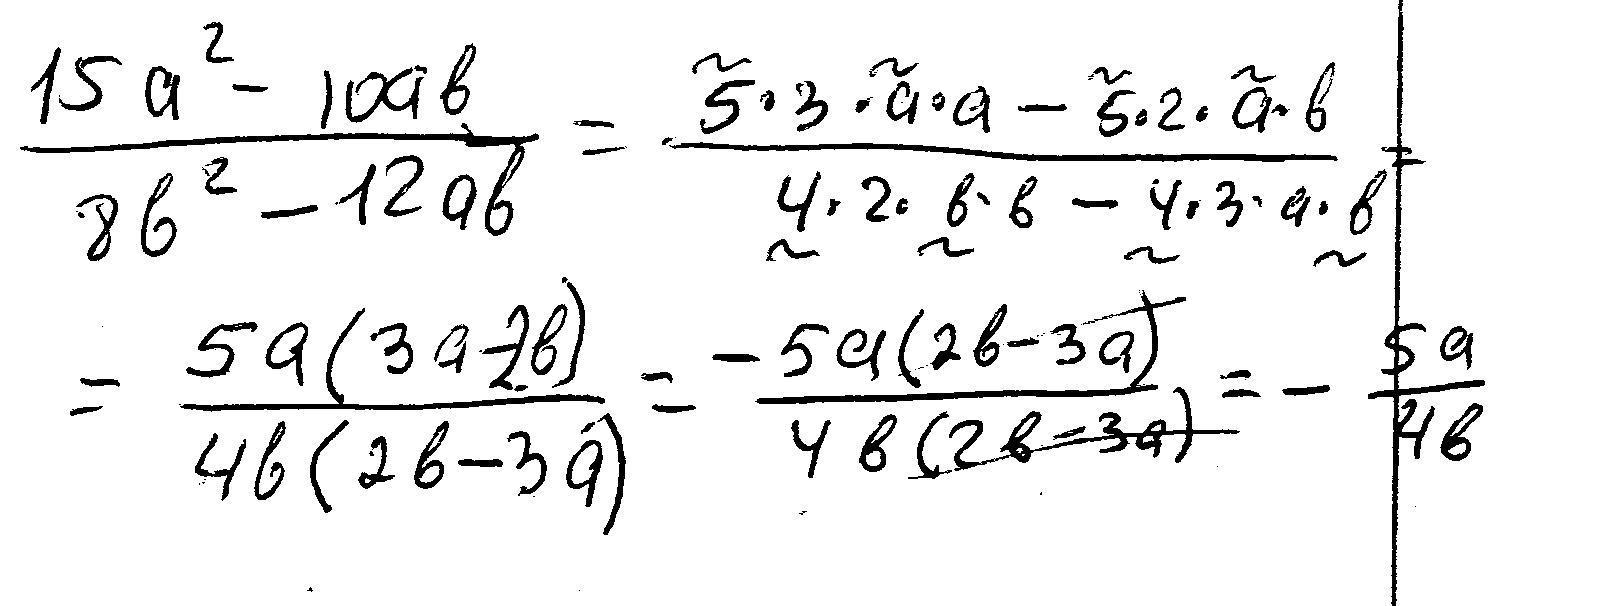 (15a² - 10ab)/(8b² - 12ab) = (5·3·a·a - 5·2·a·b)/(4·2·b·b - 4·3·a·b) =
= 5a(3a-2b)/4b(2b-3a) = -5a(2b-3a)/4b(2b-3a) = - 5a/4b